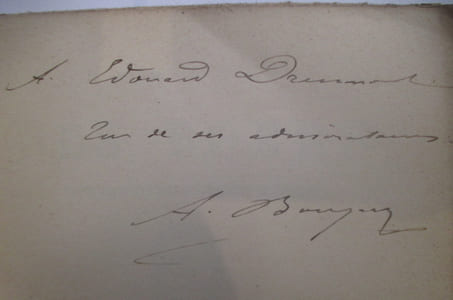 A. Edouard Drumont
Un de ses admirateurs.
A.